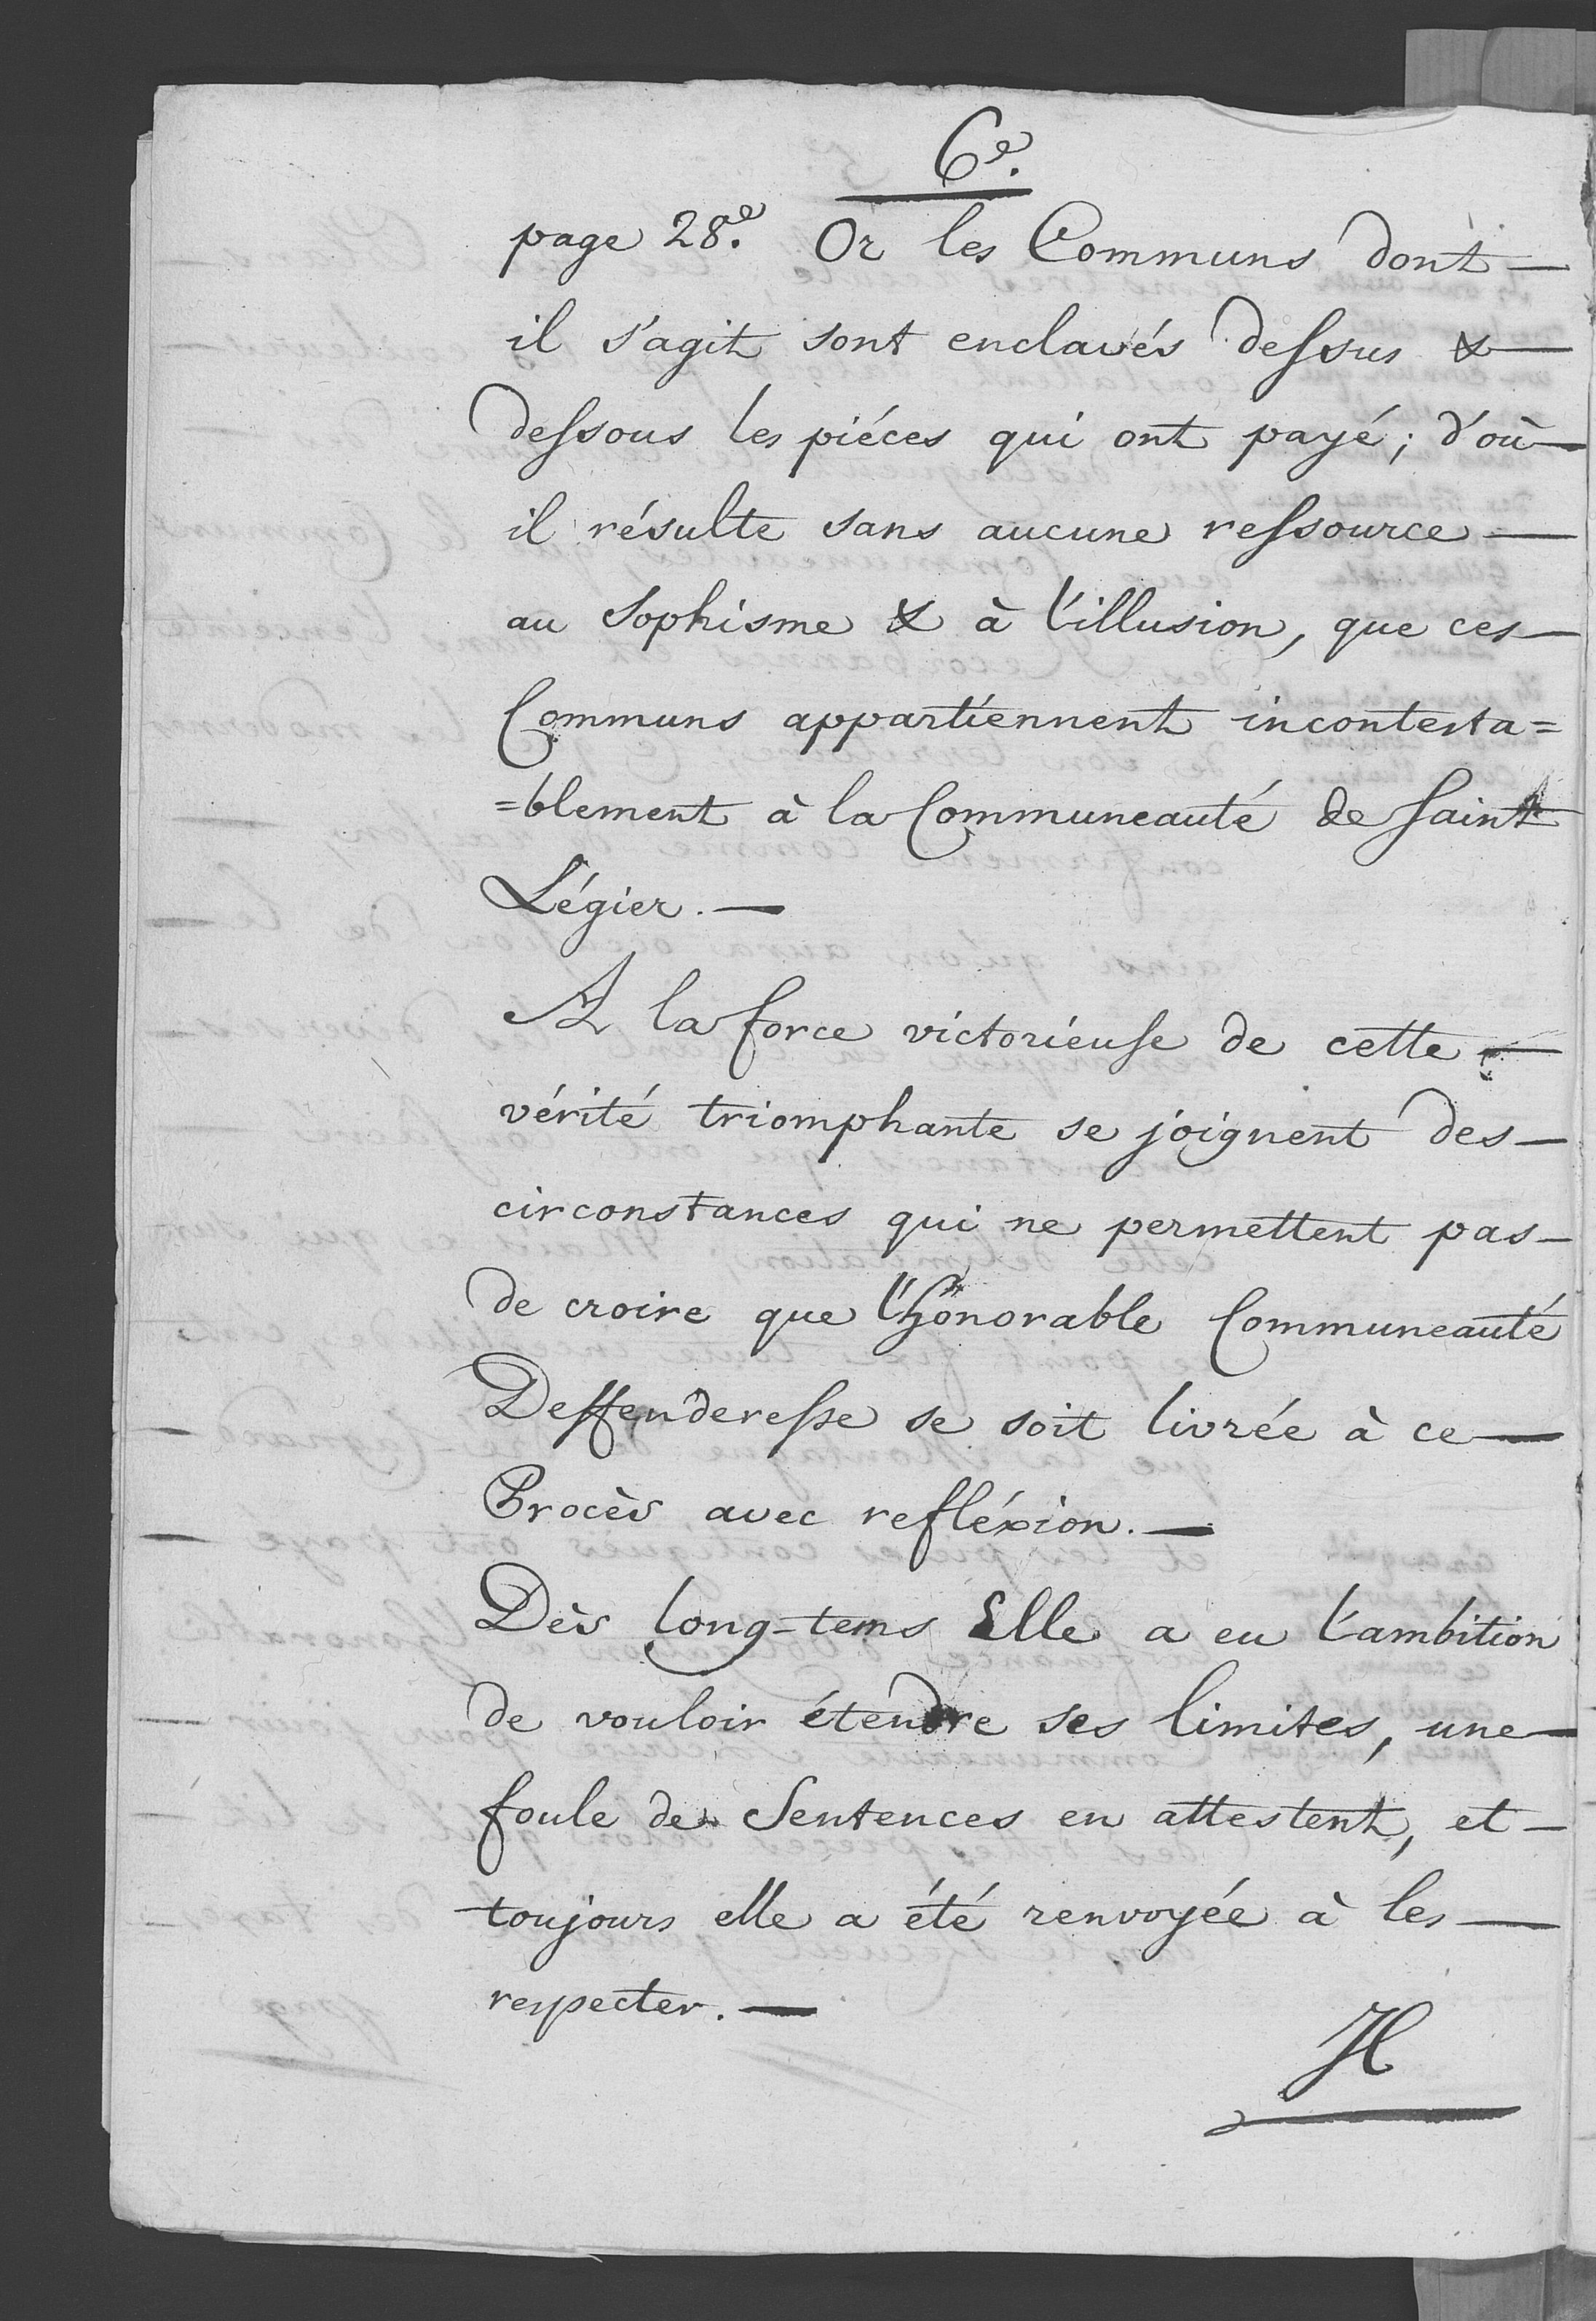 6e.
page 28e. Or les Communs dont —
il s'agit sont enclavés dessus & —
dessous les piéces qui ont payé ; d'où —
il résulte sans aucune ressource —
au Sophisme & à l'illusion, que ces —
Communs appartiennent incontesta=
=blement à la Communeauté de Saint
Légier. —
A la force victorieuse de cette —
vérité triomphante se joignent des —
circonstances qui ne permettent pas —
de croire que l'honorable Communeauté
Deffenderesse se soit livrée à ce —
Procès avec refléxion. —
Dès long-tems Elle a eu l'ambition
de vouloir étendre ses limites, une —
foule de Sentences en attestent, et —
toujours elle a été renvoyée à les —
respecter. —
Il